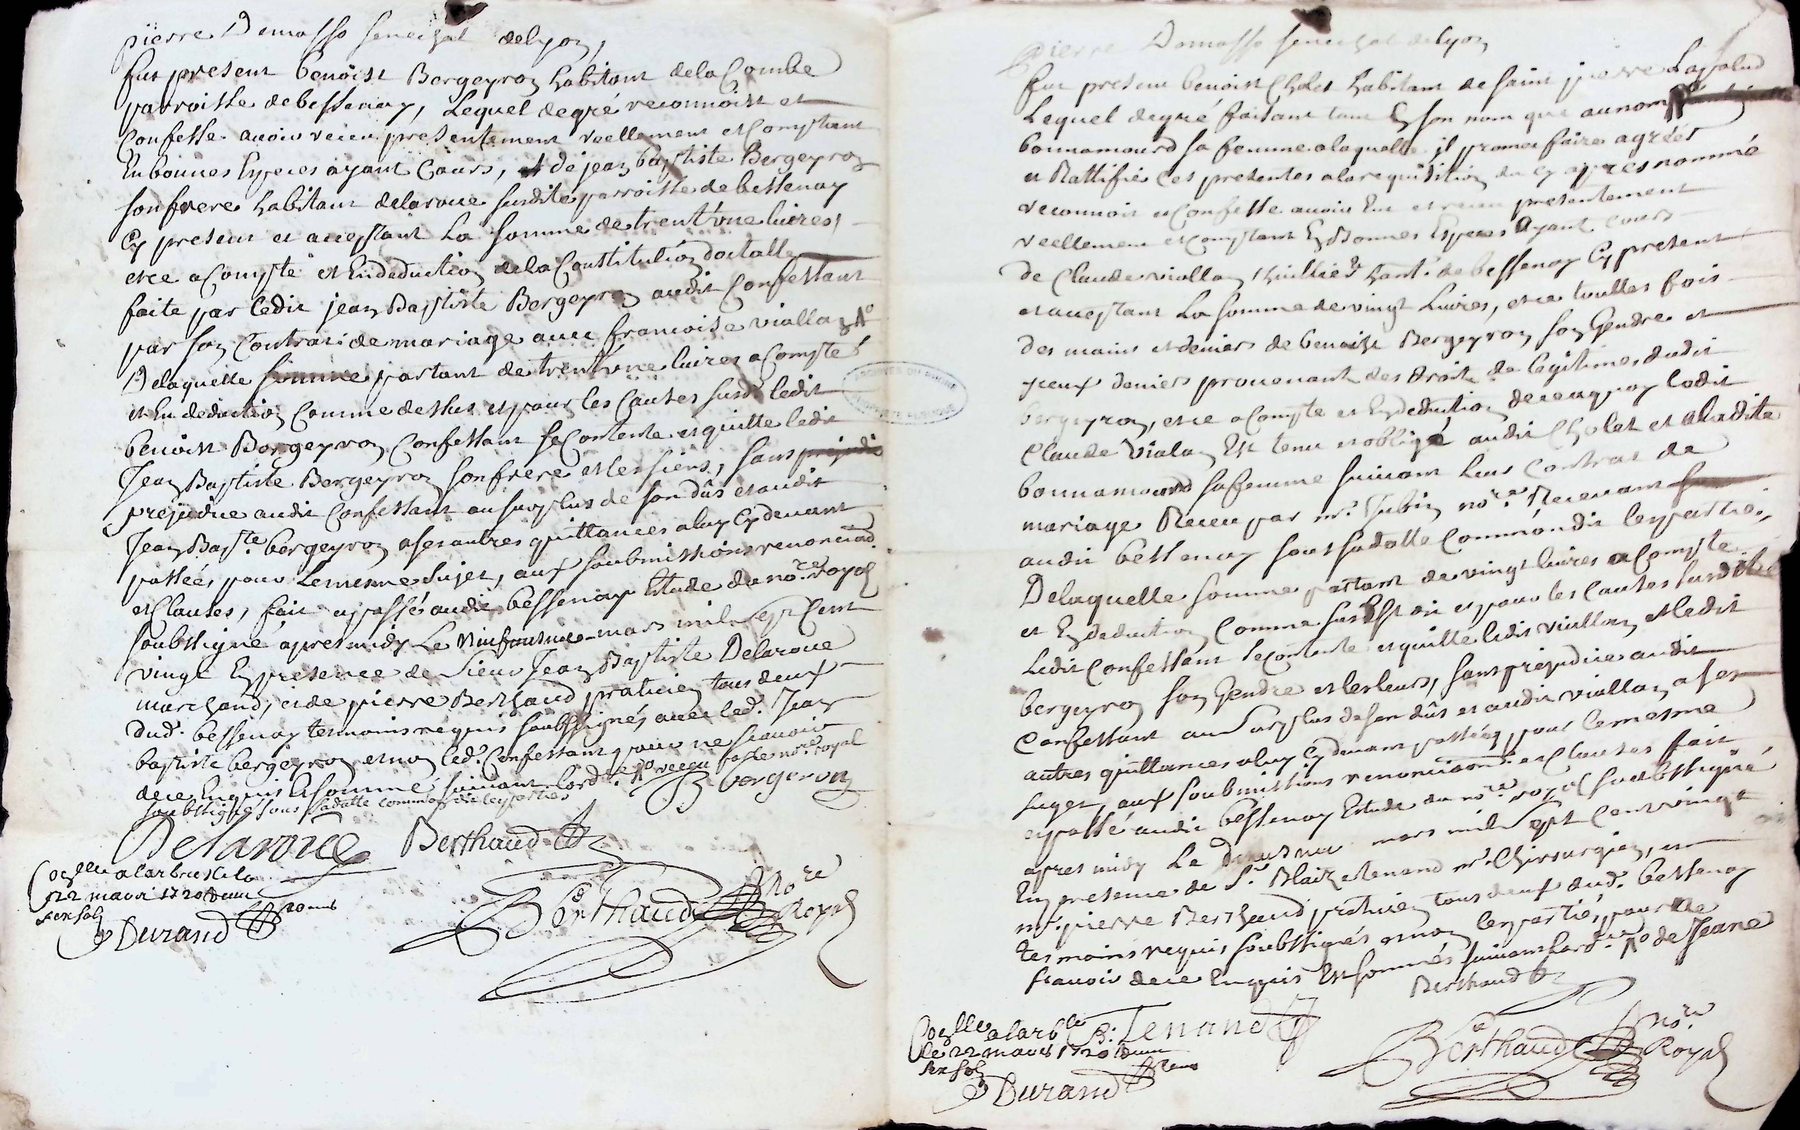 pierre Demasso senechal delyon,
fut present benoist Bergeyron habitant delaCombe
parroisse debessenay, Lequel degré reconnoist et
Confesse avoir receu presentement reellement etComptant
En bonnes Especes ayant Cours, de jean baptiste Bergeyron
son frere habitant delaroue susdite parroisse de bessenay
Cy present et aceptant La somme de trent'une livres
etce aCompte et Endeduction delaConstitution dotalle
faite par ledit jean Baptiste Bergeyron audit Confessant
par son Contrat de mariage avec francoise viallon
Delaquelle somme partant de trent'une livres aCompte
et En deduction Comme dessus et pour les Causes susd. ledit
benoist Bergeyron Confessant seContente etquitte ledit
Jean Baptiste Bergeyron son frere et les siens, sans
prejudice audit Confessant au surplus de son dûs et audit
Jean Bapte. bergeyron ases autres quittances aluy Cydevant
passées pour Lemesme Sujet, aux soubmissions renonciaõns
et Clauses, fait apassé audit bessenay Etude du nore. royal
soubsigné apres midy Le mars mil sept Cent
vingt En presence de Sieur Jean Baptiste Delaroue
marchand, et de pierre Berthaud praticien tous deux
dud. bessenay tesmoins requis soubsignés avec led. Jean
baptiste bergeyron et non led. Confessant pour ne scavoir
dece Enquis et sommé suivant lordce. receu par le nore. royal
soubsigné sous sadatte Comme disent les parties
B bergeron
Delaroue Berthaud
Conllé alarbresle le
22 mars 1720
six sols
Durand
Berthaud nore
Royal
Pierre Demasso senechal delyon
fut present benoist Cholet habitant de saint pierre Lapalud
Lequel degré faisant tant En son nom que au nom
bonnamourd sa femme alaquelle il promet faire agréer
et Rattifier Ces presentes alarequisition du cy apres nommé
reconnoit et Confesse avoir Eut et receu presentement
reellement et Comptant En Bonnes Especes Ayant Cours
de Claude viallon thuillier hant. de bessenay Cy present
et aceptant La somme de vingt Livres, et ce touttes fois
des mains et deniers de benoist Bergeyron son Gendre et
yceux deniers provenant des droit de legitimes dudit
bergeyron, et ce aCompte et En deduction de ce aquoy ledit
Claude Vialon Est tenu et obligé audit Cholet et aladite
bonnamourd sa femme suivant leur Contrat de
mariage Receu par mr. nore. Recevant
audit bessenay sous sadatte Comme on dit les parties,
Delaquelle somme partant de vingt livres aCompte
et En deduction Comme sus Est dit et pour les Causes susdites
Ledit Confessant seContente et quitte ledit viallon et ledit
bergeyron son Gendre et lesleurs, sans prejudice audit
Confessant au Surplus de son dûs et audit viallon ases
autres quittances aluy Cy devant passées pour lemesme
sujet, aux soubmissions renonciaõns et Clauses fait
et passé audit bessenay Estude du nore. royal soubsigné
apres midy Le mars mil sept Cent vingt
En presence de Sr. Blaize tenand mr. Chirurgien, et
mr. pierre Berthaud praticien tous deux dud. bessenay
tesmoins requis soubsignés et non les parties, pour ne
scavoir dece Enquis Et sommés suivant lordce. de Jeane
Berthaud
B. Tenand
Conllé alarble
le 22 mars 1720
six sols
Durand
Berthaud nore.
Royal